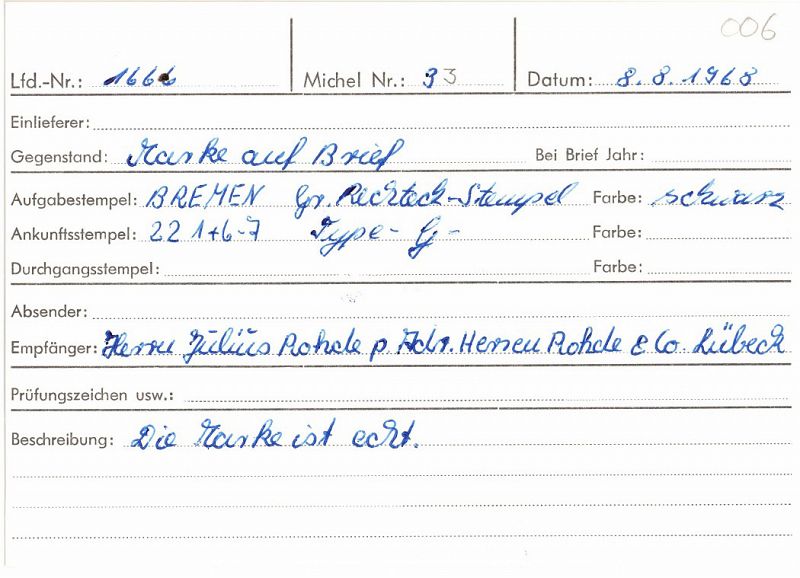 006
Lfd.-Nr.: 1666 Michel Nr.: 33 Datum: 8.8.1968
Einlieferer:
Gegenstand: Marke auf Brief Bei Brief Jahr:
Aufgabestempel: BREMEN Gr. Rechteck-Stempel Farbe: schwarz
Ankunftsstempel: 22 1+6-7 Type- G - Farbe:
Durchgangsstempel: Farbe:
Absender:
Empfänger: Herrn Julius Rohde p. Adr. Herren Rohde & Co. Lübeck
Prüfungszeichen usw.:
Beschreibung: Die Marke ist echt.